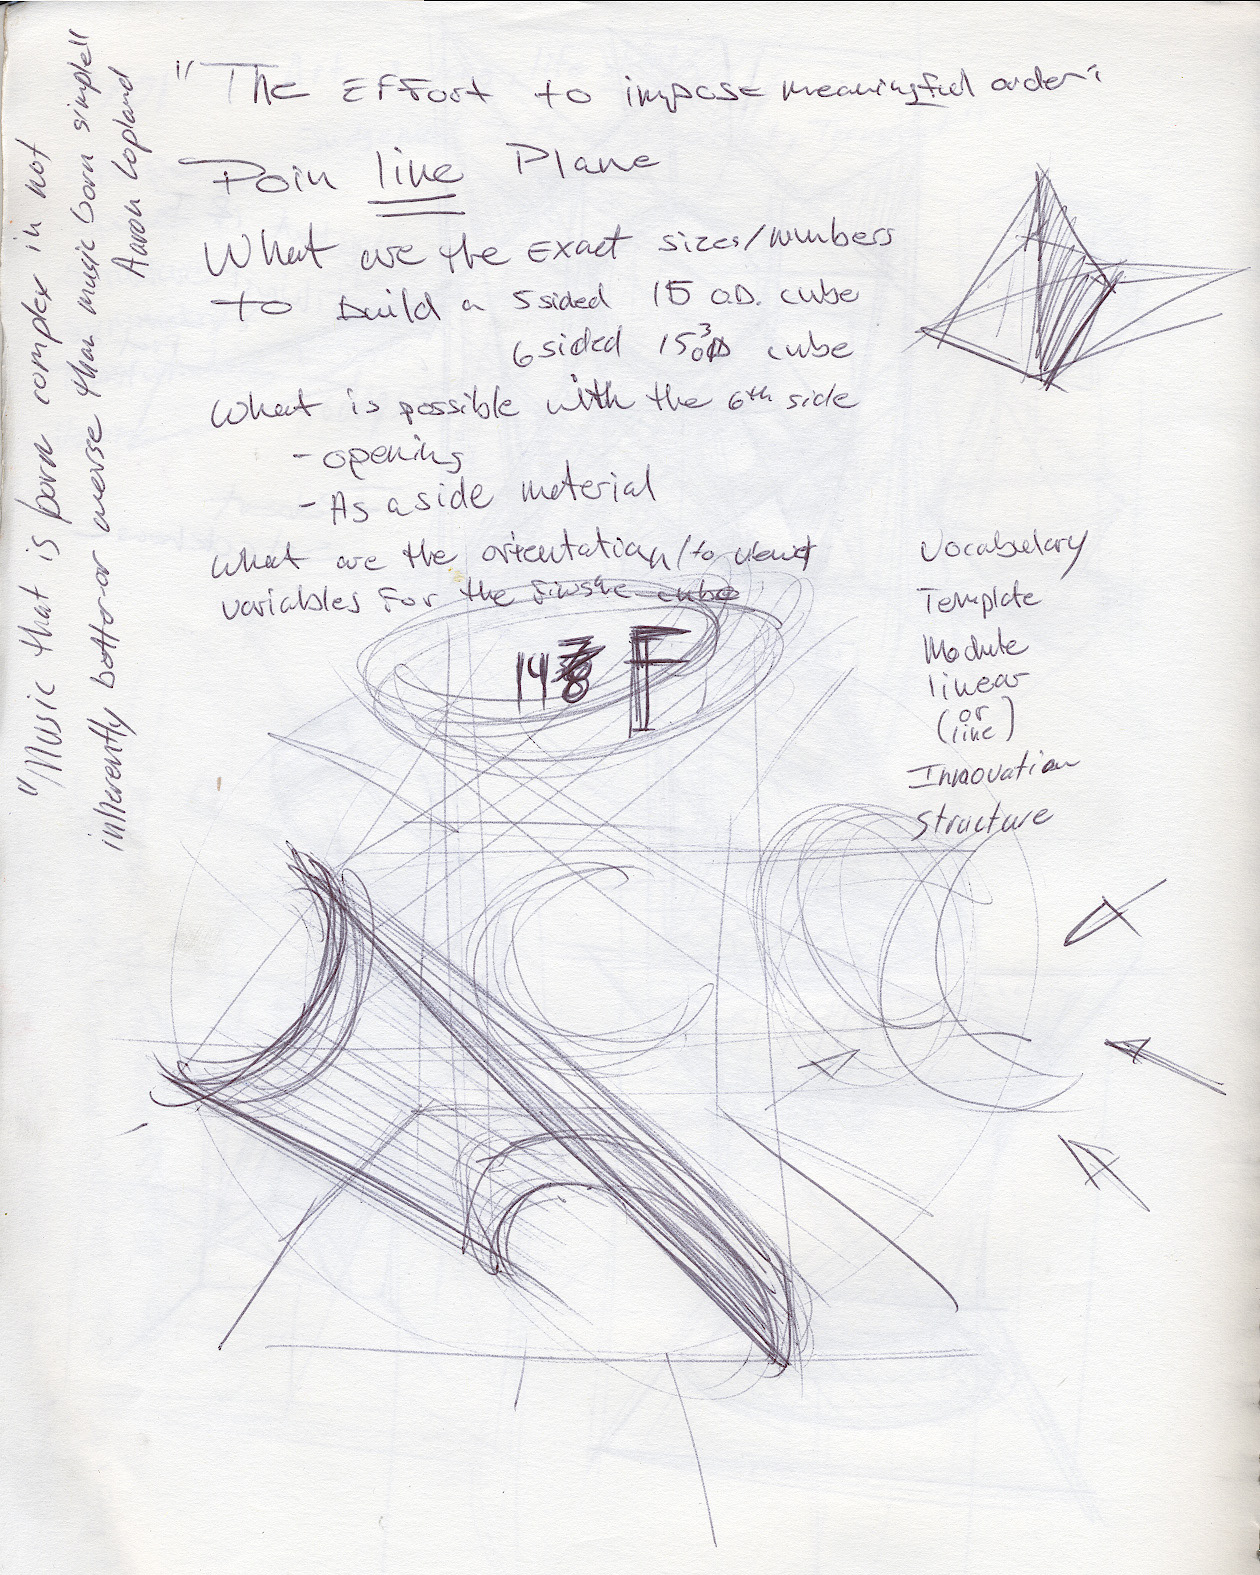 "The Effort to impose meaningful order"
Poin line Plane
What are the exact sizes/numbers
to build a 5 sided 15 O.D. cube
6 sided 15³ OD cube
What is possible with the 6th side
- opening
- As a side material
What are the orientation/to
variables for the cube
148 F
Vocabulary
Template
Module
linear
(or
line)
Innovation
Structure
"Music that is born complex in not
inherently better or averse than music born simple"
Aaron Copland